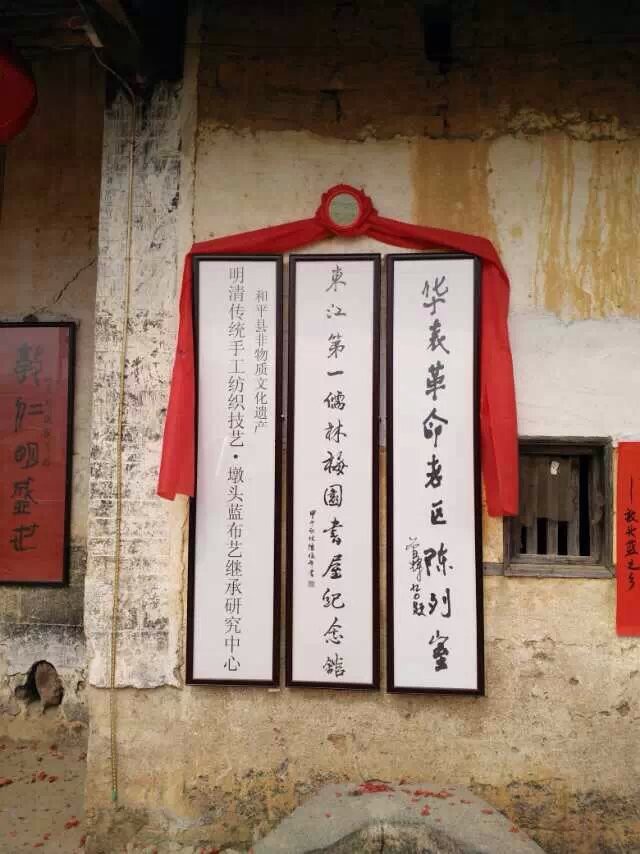 蓝之乡
华表革命老区陈列室
東江第一儒林梅園書屋纪念舘
和平县非物质文化遗产
明清传统手工纺织技艺·墩头蓝布艺继承研究中心
仁明盛世